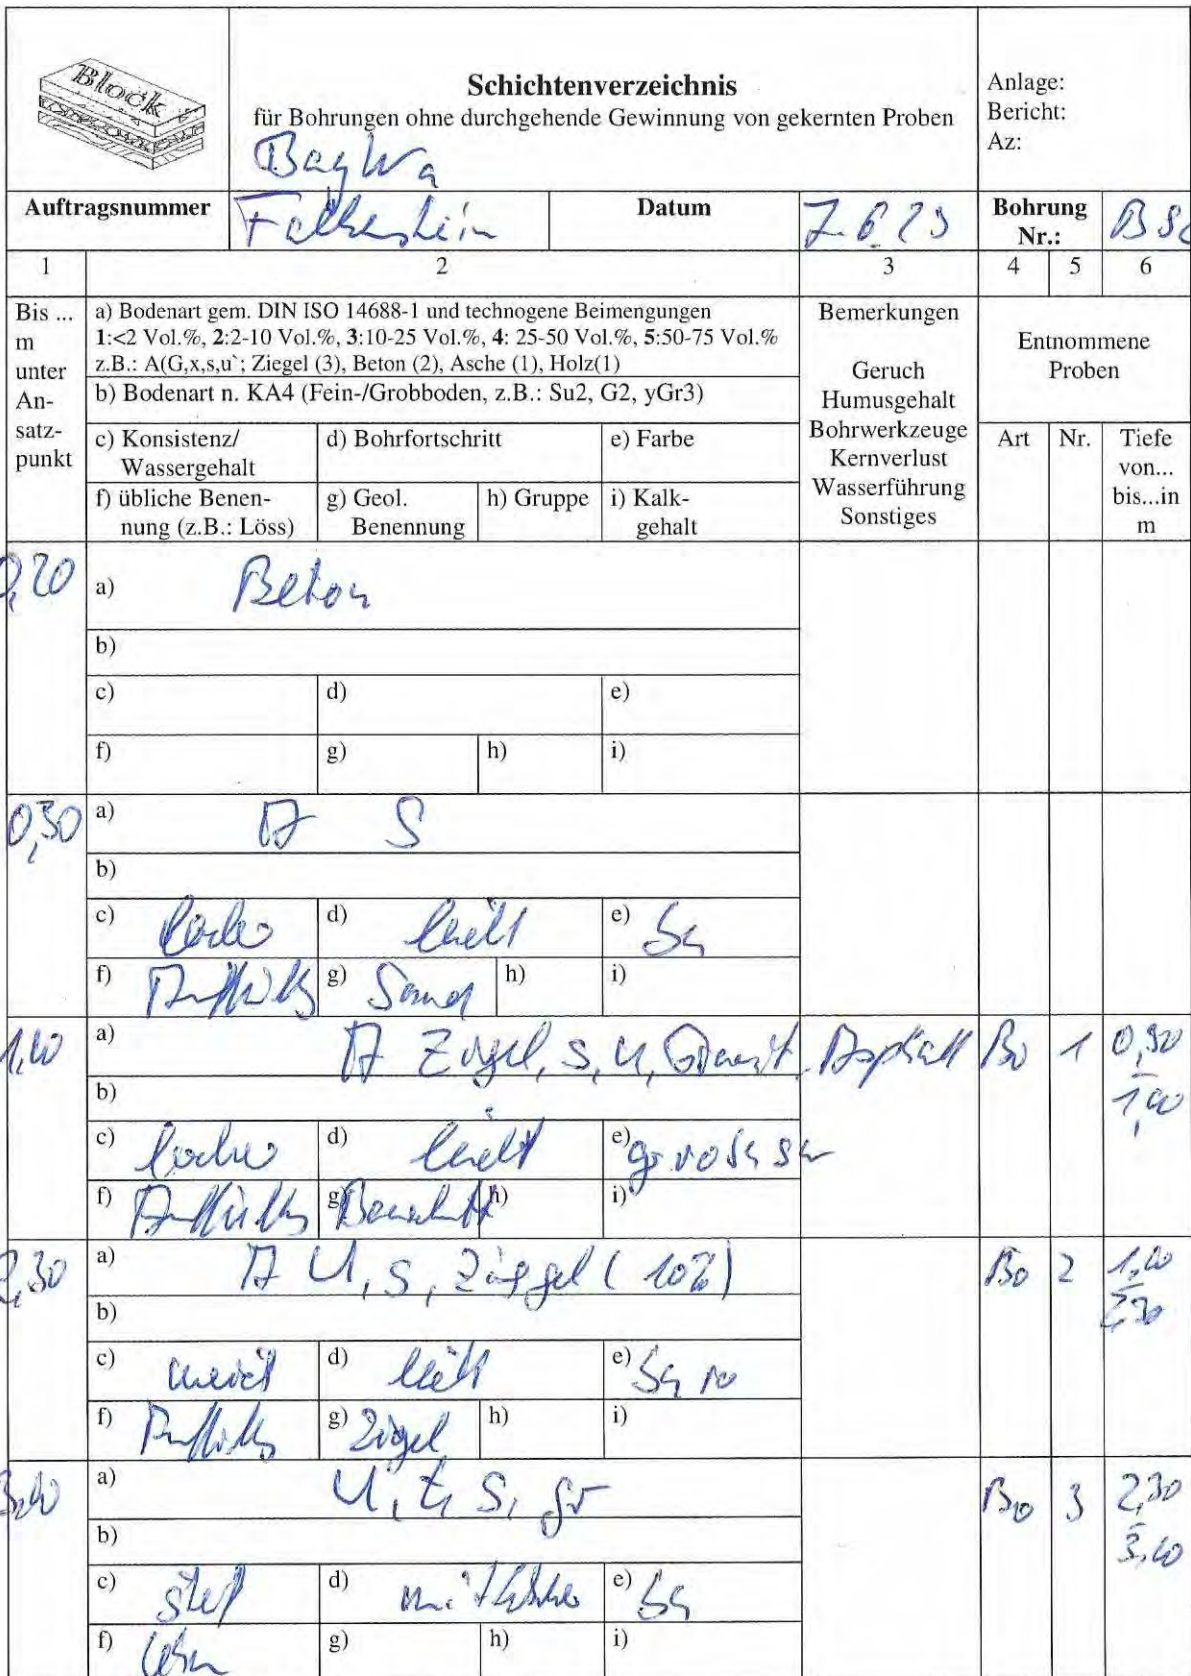 Block
Schichtenverzeichnis
für Bohrungen ohne durchgehende Gewinnung von gekernten Proben
BayWa
Anlage:
Bericht:
Az:
Auftragsnummer
Falkenstein
Datum
Bohrung
Nr.:
1 2 3 4 5 6
Bis ...
m
unter
An-
satz-
punkt
a) Bodenart gem. DIN ISO 14688-1 und technogene Beimengungen
1:<2 Vol.%, 2:2-10 Vol.%, 3:10-25 Vol.%, 4: 25-50 Vol.%, 5:50-75 Vol.%
z.B.: A(G,x,s,u`; Ziegel (3), Beton (2), Asche (1), Holz(1)
b) Bodenart n. KA4 (Fein-/Grobboden, z.B.: Su2, G2, yGr3)
c) Konsistenz/
Wassergehalt
d) Bohrfortschritt
e) Farbe
f) übliche Benen-
nung (z.B.: Löss)
g) Geol.
Benennung
h) Gruppe
i) Kalk-
gehalt
Bemerkungen
Geruch
Humusgehalt
Bohrwerkzeuge
Kernverlust
Wasserführung
Sonstiges
Entnommene
Proben
Art
Nr.
Tiefe
von...
bis...in
m
0,20
a) Beton
b)
c) d) e)
f) g) h) i)
0,30
a) A S
b)
c) locker d) leicht e)
f) Auffüllg g) Sand h) i)
a) A Ziegel, s, u, Granit, Asphalt
1
b)
c) locker d) leicht e)
f) Auffüllg g) Bauschutt h) i)
2,30
a) A U, s, Ziegel (10%)
2
b)
c) weich d) leicht e)
f) Auffüllg g) Ziegel h) i)
a) U, t, s, gr
3 2,30
b)
c) steif d) e)
f) Lehm g) h) i)